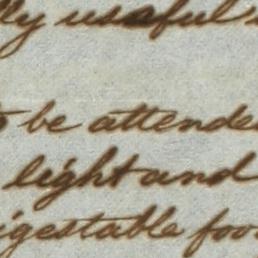 lly useful
to be attended
light and
igestable food